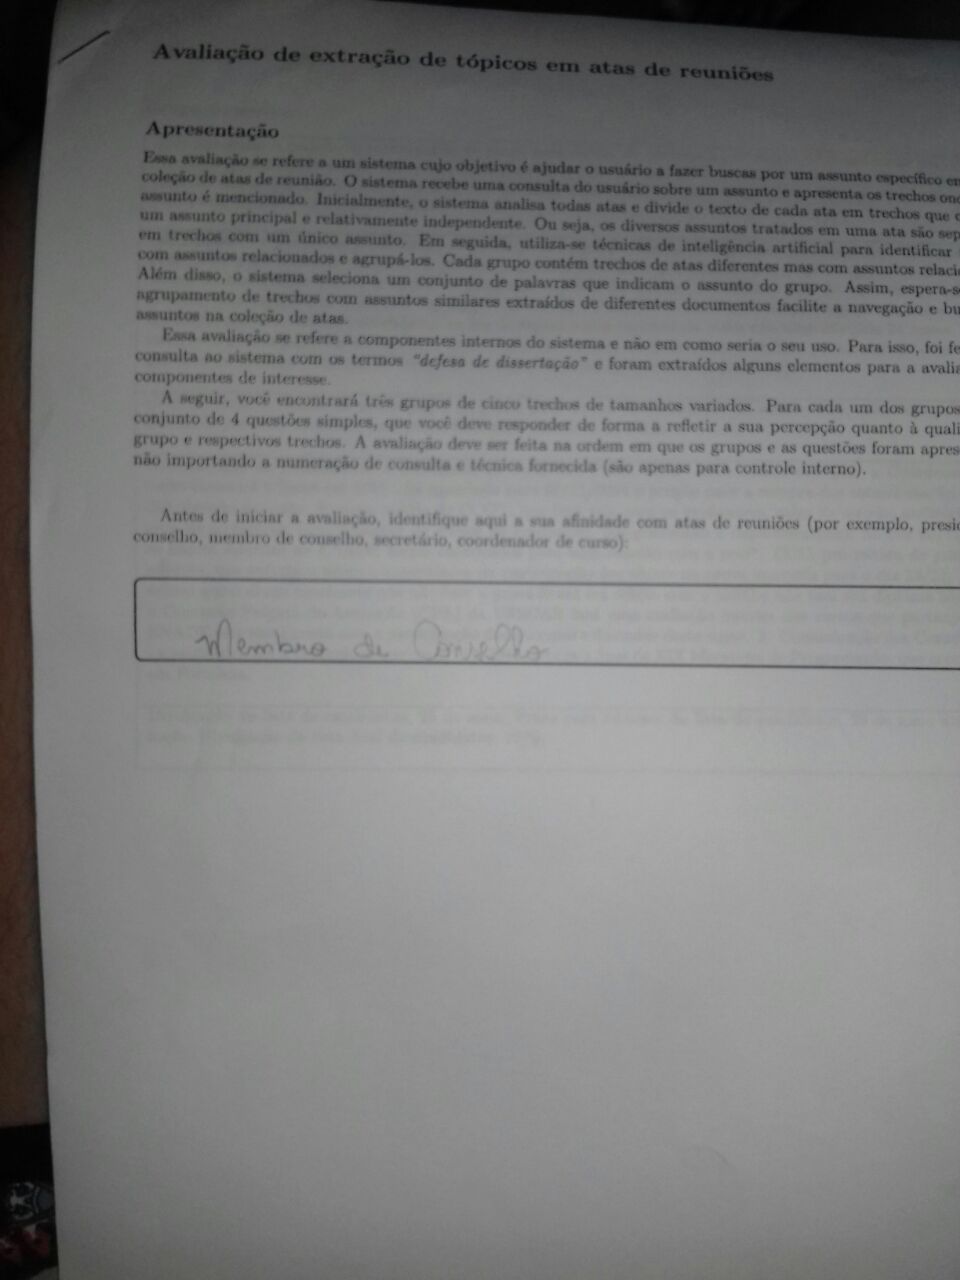 Avaliação de extração de tópicos em atas de reuniões
Apresentação
Essa avaliação se refere a um sistema cujo objetivo é ajudar o usuário a fazer buscas por um assunto específico
coleção de atas de reunião. O sistema recebe uma consulta do usuário sobre um assunto e apresenta os trechos
assunto é mencionado. Inicialmente, o sistema analisa todas atas e divide o texto de cada ata em trechos que
um assunto principal e relativamente independente. Ou seja, os diversos assuntos tratados em uma ata são
em trechos com um único assunto. Em seguida, utiliza-se técnicas de inteligência artificial para identificar
com assuntos relacionados e agrupá-los. Cada grupo contém trechos de atas diferentes mas com assuntos
Além disso, o sistema seleciona um conjunto de palavras que indicam o assunto do grupo. Assim,
agrupamento de trechos com assuntos similares extraídos de diferentes documentos facilite a navegação e
assuntos na coleção de atas.
Essa avaliação se refere a componentes internos do sistema e não em como seria o seu uso. Para isso, foi
consulta ao sistema com os termos "defesa de dissertação" e foram extraídos alguns elementos para a
componentes de interesse.
A seguir, você encontrará três grupos de cinco trechos de tamanhos variados. Para cada um dos grupos
conjunto de 4 questões simples, que você deve responder de forma a refletir a sua percepção quanto à
grupo e respectivos trechos. A avaliação deve ser feita na ordem em que os grupos e as questões foram
não importando a numeração de consulta e técnica fornecida (são apenas para controle interno).
Antes de iniciar a avaliação, identifique aqui a sua afinidade com atas de reuniões (por exemplo,
conselho, membro de conselho, secretário, coordenador de curso):
Membro de Conselho